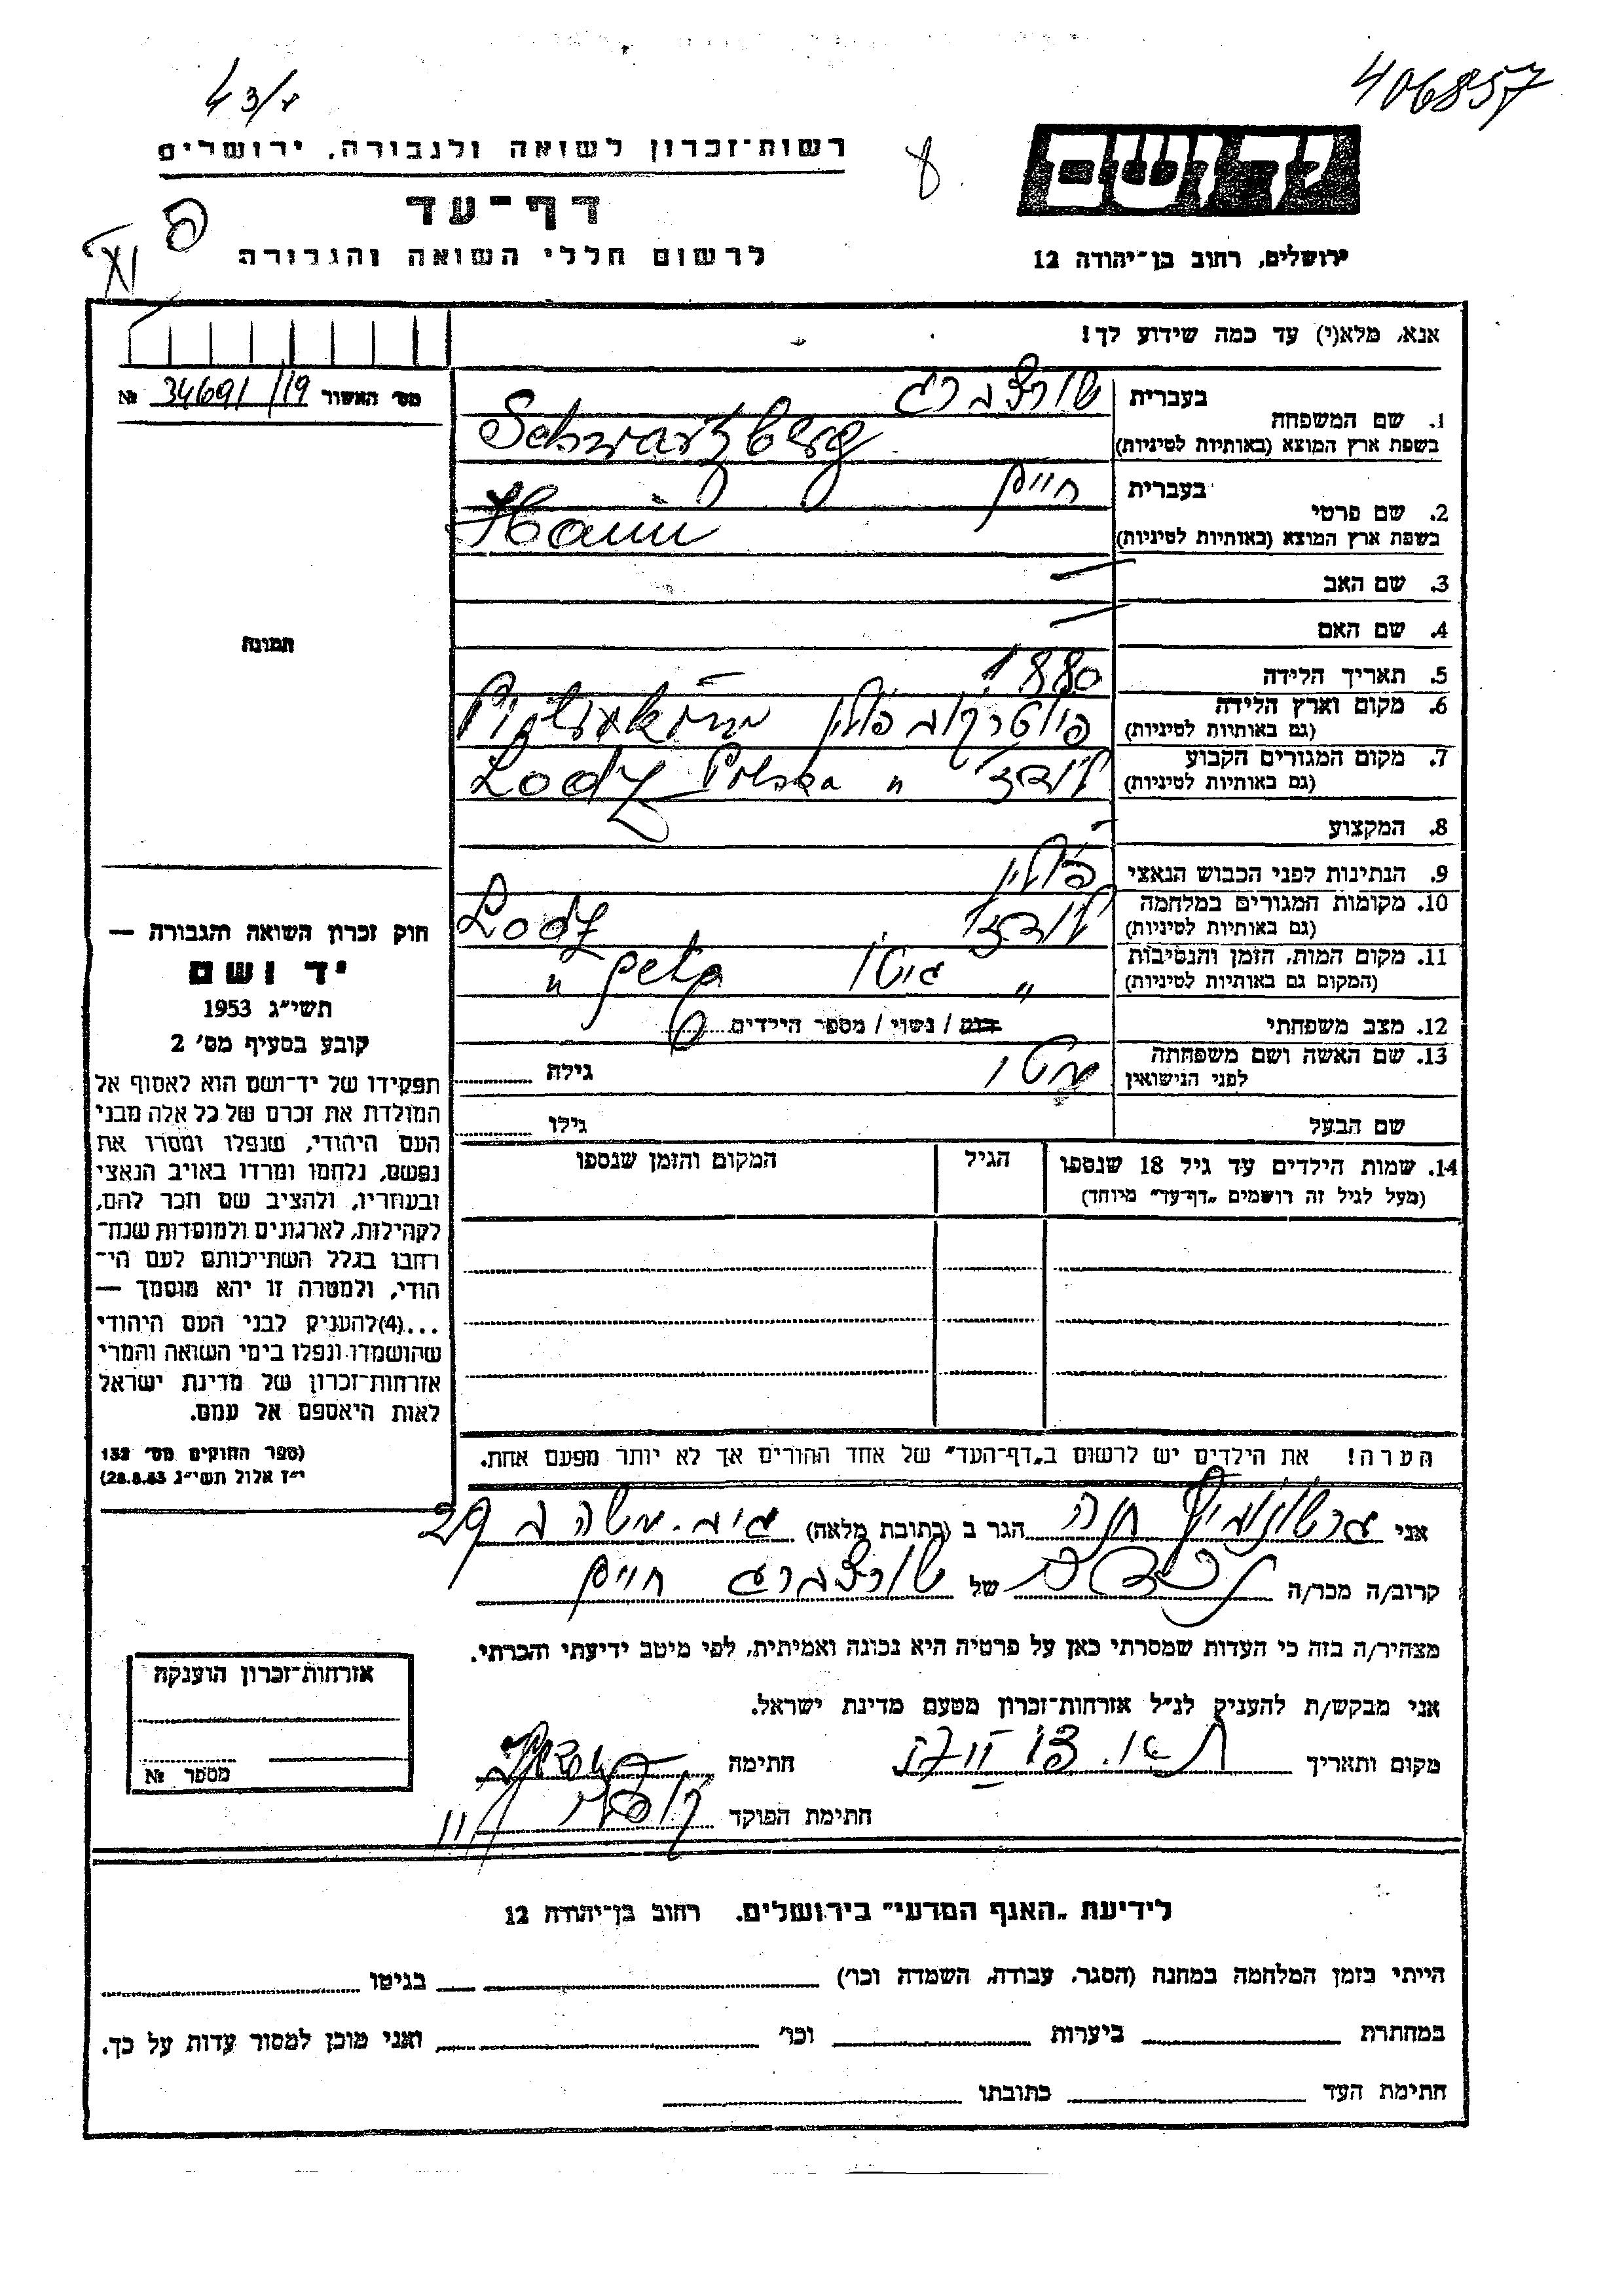 406857
43/
רשות-זכרון לשואה ולגבורה, ירושלים
דף-עד
לרשום חללי השואה והגבורה
יד ושם
ירושלים, רחוב בן-יהודה 12
אנא, מלא(י) עד כמה שידוע לך!
מס' האשור 34691/19 №
תמונה
1. שם המשפחה
בעברית שורצברג
בשפת ארץ המוצא (באותיות לטיניות) Schwarzberg
2. שם פרטי
בעברית חיים
בשפת ארץ המוצא (באותיות לטיניות) Haim
3. שם האב —
4. שם האם —
5. תאריך הלידה 1880
6. מקום וארץ הלידה פיוטרקוב פולין
(גם באותיות לטיניות)
7. מקום המגורים הקבוע לודז' " Lodz Polska
(גם באותיות לטיניות)
8. המקצוע -
9. הנתינות לפני הכבוש הנאצי פולין
10. מקומות המגורים במלחמה לודז' Lodz
(גם באותיות לטיניות)
11. מקום המות, הזמן והנסיבות " גיטו geto "
(המקום גם באותיות לטיניות)
12. מצב משפחתי רווק / נשוי / מספר הילדים 6
13. שם האשה ושם משפחתה
לפני הנישואין גילה
שם הבעל גילו
14. שמות הילדים עד גיל 18 שנספו הגיל המקום והזמן שנספו
(מעל לגיל זה רושמים "דף-עד" מיוחד)
הערה! את הילדים יש לרשום ב"דף-העד" של אחד ההורים אך לא יותר מפעם אחת.
חוק זכרון השואה והגבורה —
יד ושם
תשי"ג 1953
קובע בסעיף מס' 2
תפקידו של יד-ושם הוא לאסוף אל
המולדת את זכרם של כל אלה מבני
העם היהודי, שנפלו ומסרו את
נפשם, נלחמו ומרדו באויב הנאצי
ובעוזריו, ולהציב שם וזכר להם,
לקהילות, לארגונים ולמוסדות שנח-
רבו בגלל השתייכותם לעם הי-
הודי, ולמטרה זו יהא מוסמך —
...(4) להעניק לבני העם היהודי
שהושמדו ונפלו בימי השואה והמרי
אזרחות-זכרון של מדינת ישראל
לאות היאספם אל עמם.
(ספר החוקים מס' 132
י"ז אלול תשי"ג 28.8.53)
אני חנה הגר ב (כתובת מלאה) 29
קרוב/ה מכר/ה נכדה של שורצברג חיים
מצהיר/ה בזה כי העדות שמסרתי כאן על פרטיה היא נכונה ואמיתית, לפי מיטב ידיעתי והכרתי.
אני מבקש/ת להעניק לנ"ל אזרחות-זכרון מטעם מדינת ישראל.
מקום ותאריך חתימה
חתימת הפוקד
אזרחות-זכרון הוענקה
מספר №
לידיעת "האגף המדעי" בירושלים. רחוב בן-יהודה 12
הייתי בזמן המלחמה במחנה (הסגר, עבודה, השמדה וכו') בגיטו
במחתרת ביערות וכו' ואני מוכן למסור עדות על כך.
חתימת העד כתובתו